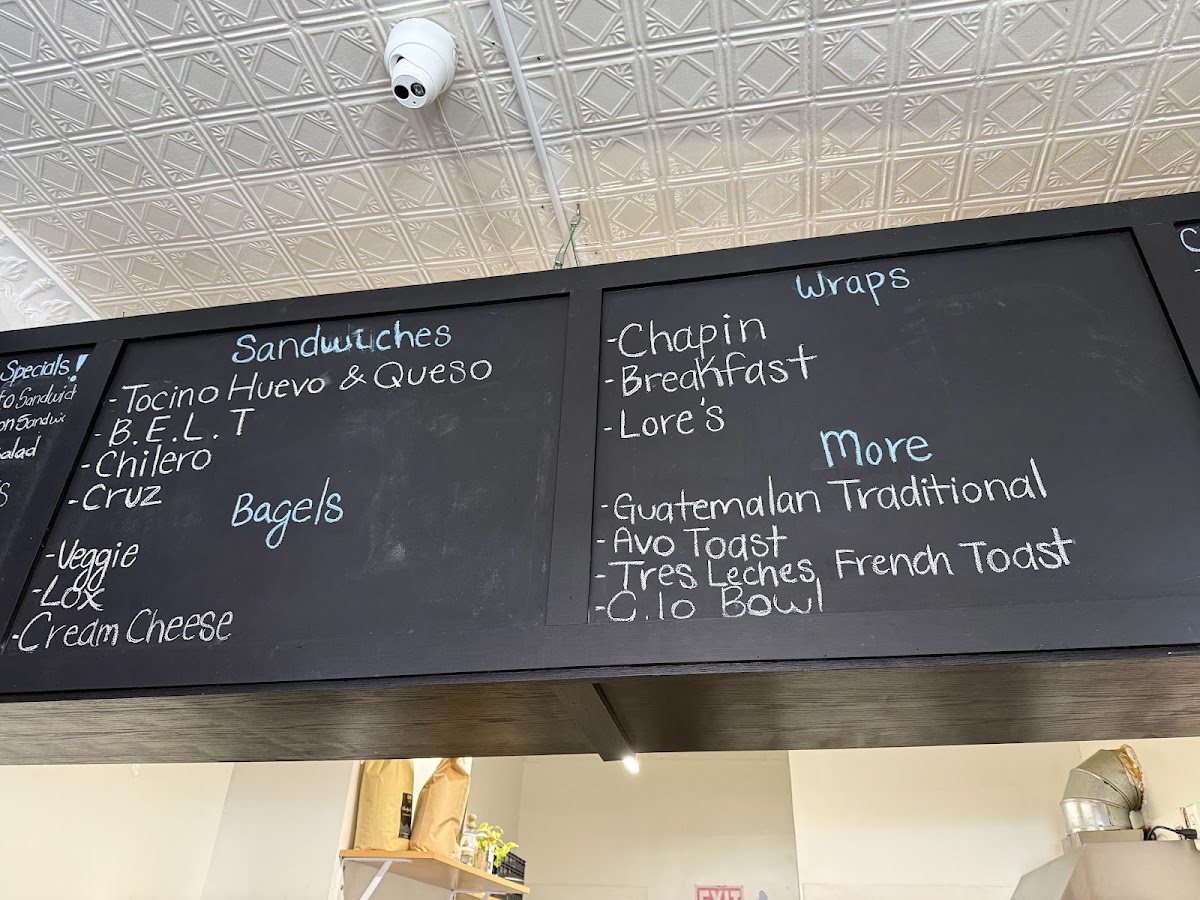 Specials!
Sandwich
Salad
Sandwiches
- Tocino Huevo & Queso
- B.E.L.T
- Chilero
- Cruz
Bagels
- Veggie
- Lox
- Cream Cheese
Wraps
- Chapin
- Breakfast
- Lore's
More
- Guatemalan Traditional
- Avo Toast
- Tres Leches French Toast
- C.lo Bowl
EXIT